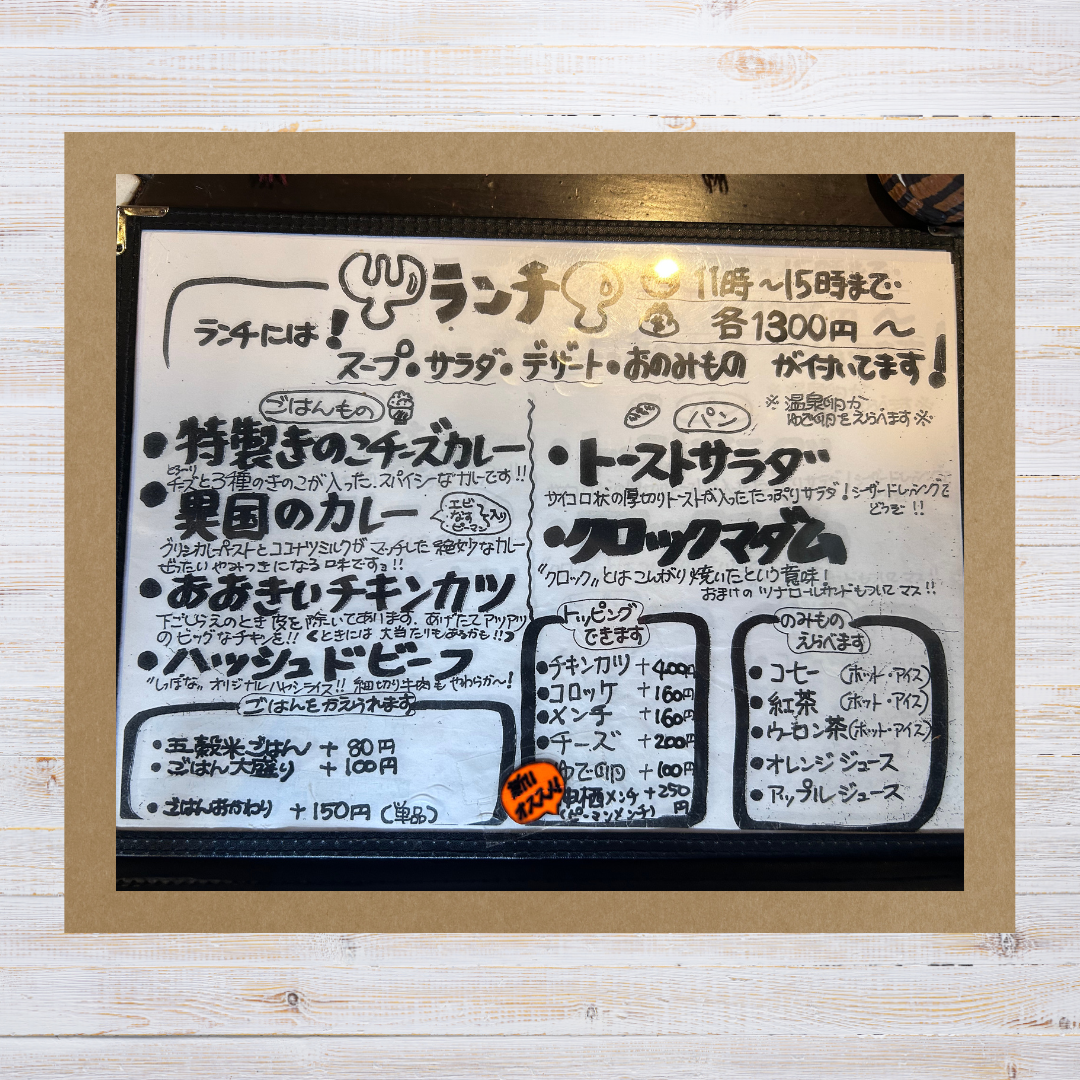 ランチ
11時〜15時まで
各1300円〜
ランチには!
スープ・サラダ・デザート・おのみもの が付いてます!
ごはんもの
・特製きのこチーズカレー
とろ〜りチーズと3種のきのこが入った、スパイシーなカレーです!!
・異国のカレー
エビ なす ピーマン 入り
グリーンカレーペーストとココナツミルクがマッチした絶妙なカレー
ぜったいやみつきになる味ですョ!!
・おおきいチキンカツ
下ごしらえのとき皮を除いてあります。あげたてアツアツ
のビッグなチキンを!! (ときには大当たりもあるかも!!)
・ハッシュドビーフ
オリジナルハヤシライス!! 細切り牛肉もやわらか〜!
ごはんをかえられます
・五穀米ごはん +80円
・ごはん大盛り +100円
・ごはんおかわり +150円(単品)
パン
※温泉卵か
ゆで卵をえらべます※
・トーストサラダ
サイコロ状の厚切りトーストが入ったたっぷりサラダ!シーザードレッシングで
どうぞ!!
・クロックマダム
"クロック"とはこんがり焼いたという意味!
おまけのツナロールサンドもついてマス!!
トッピング
できます
・チキンカツ +400円
・コロッケ +160円
・メンチ +160円
・チーズ +200円
ゆで卵 +100円
メンチ +250
円
(ピーマンメンチ)
オススメ!!
のみもの
えらべます
・コーヒー (ホット・アイス)
・紅茶 (ホット・アイス)
・ウーロン茶 (ホット・アイス)
・オレンジジュース
・アップルジュース